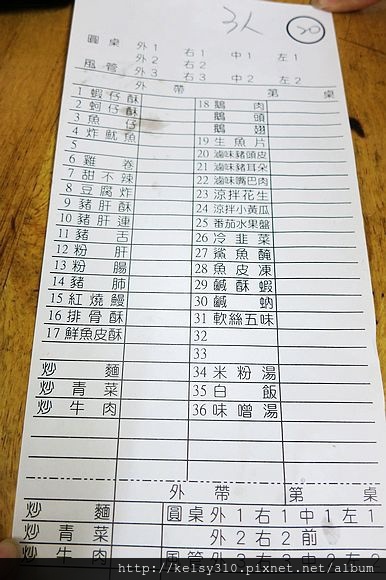 3人 20
圓桌 外1 右1 中1 左1
外2 右2
風管 外3 右3 中2 左2
外帶 第 桌
1 蝦仔酥
2 蚵仔酥
3 魚仔
4 炸魷魚
5
6 雞卷
7 甜不辣
8 豆腐炸
9 豬肝酥
10 豬肝連
11 豬舌
12 粉肝
13 粉腸
14 豬肺
15 紅燒鰻
16 排骨酥
17 鮮魚皮酥
炒麵
炒青菜
炒牛肉
18 鵝肉
鵝頭
鵝翅
19 生魚片
20 滷味豬頭皮
21 滷味豬耳朵
22 滷味嘴巴肉
23 涼拌花生
24 涼拌小黃瓜
25 番茄水果盤
26 冷韭菜
27 鯊魚醃
28 魚皮凍
29 鹹酥蝦
30 鹹蚋
31 軟絲五味
32
33
34 米粉湯
35 白飯
36 味噌湯
外帶 第 桌
炒麵 圓桌 外1 右1 中1 左1
炒青菜 外2 右2 前
炒牛肉 風管 外3 右3 中2 左2
http://kelsy310.pixnet.net/album